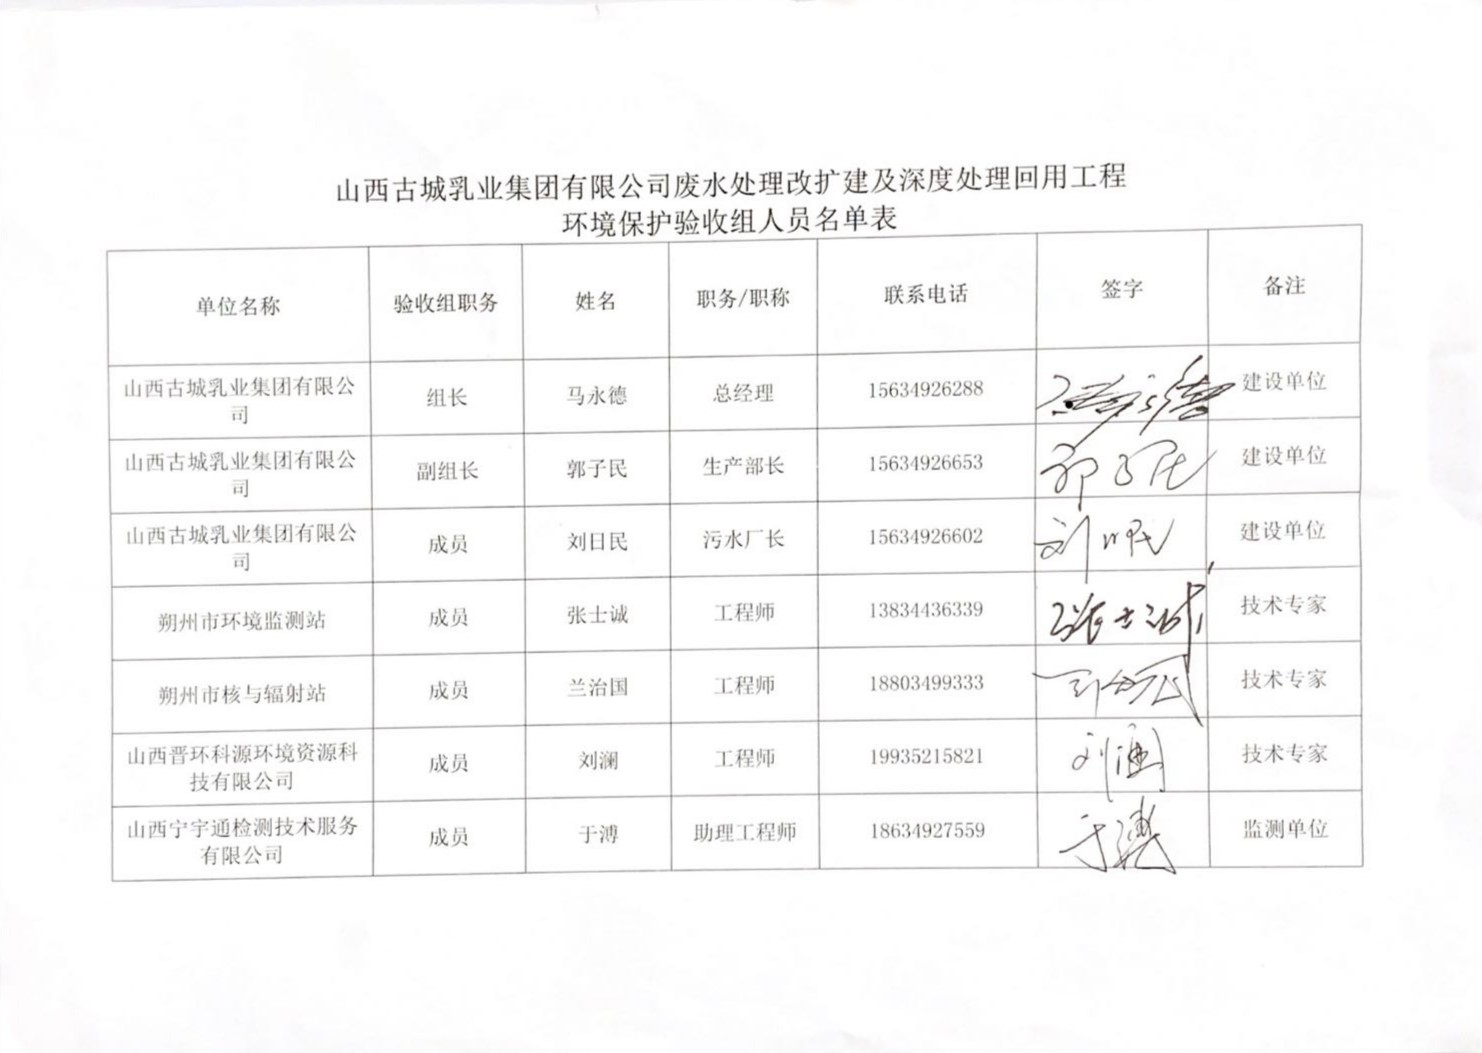 山西古城乳业集团有限公司废水处理改扩建及深度处理回用工程
环境保护验收组人员名单表
单位名称 验收组职务 姓名 职务/职称 联系电话 签字 备注
山西古城乳业集团有限公司 组长 马永德 总经理 15634926288 马永德 建设单位
山西古城乳业集团有限公司 副组长 郭子民 生产部长 15634926653 郭子民 建设单位
山西古城乳业集团有限公司 成员 刘日民 污水厂长 15634926602 刘日民 建设单位
朔州市环境监测站 成员 张士诚 工程师 13834436339 张士诚 技术专家
朔州市核与辐射站 成员 兰治国 工程师 18803499333 技术专家
山西晋环科源环境资源科技有限公司 成员 刘澜 工程师 19935215821 刘澜 技术专家
山西宁宇通检测技术服务有限公司 成员 于溥 助理工程师 18634927559 于溥 监测单位